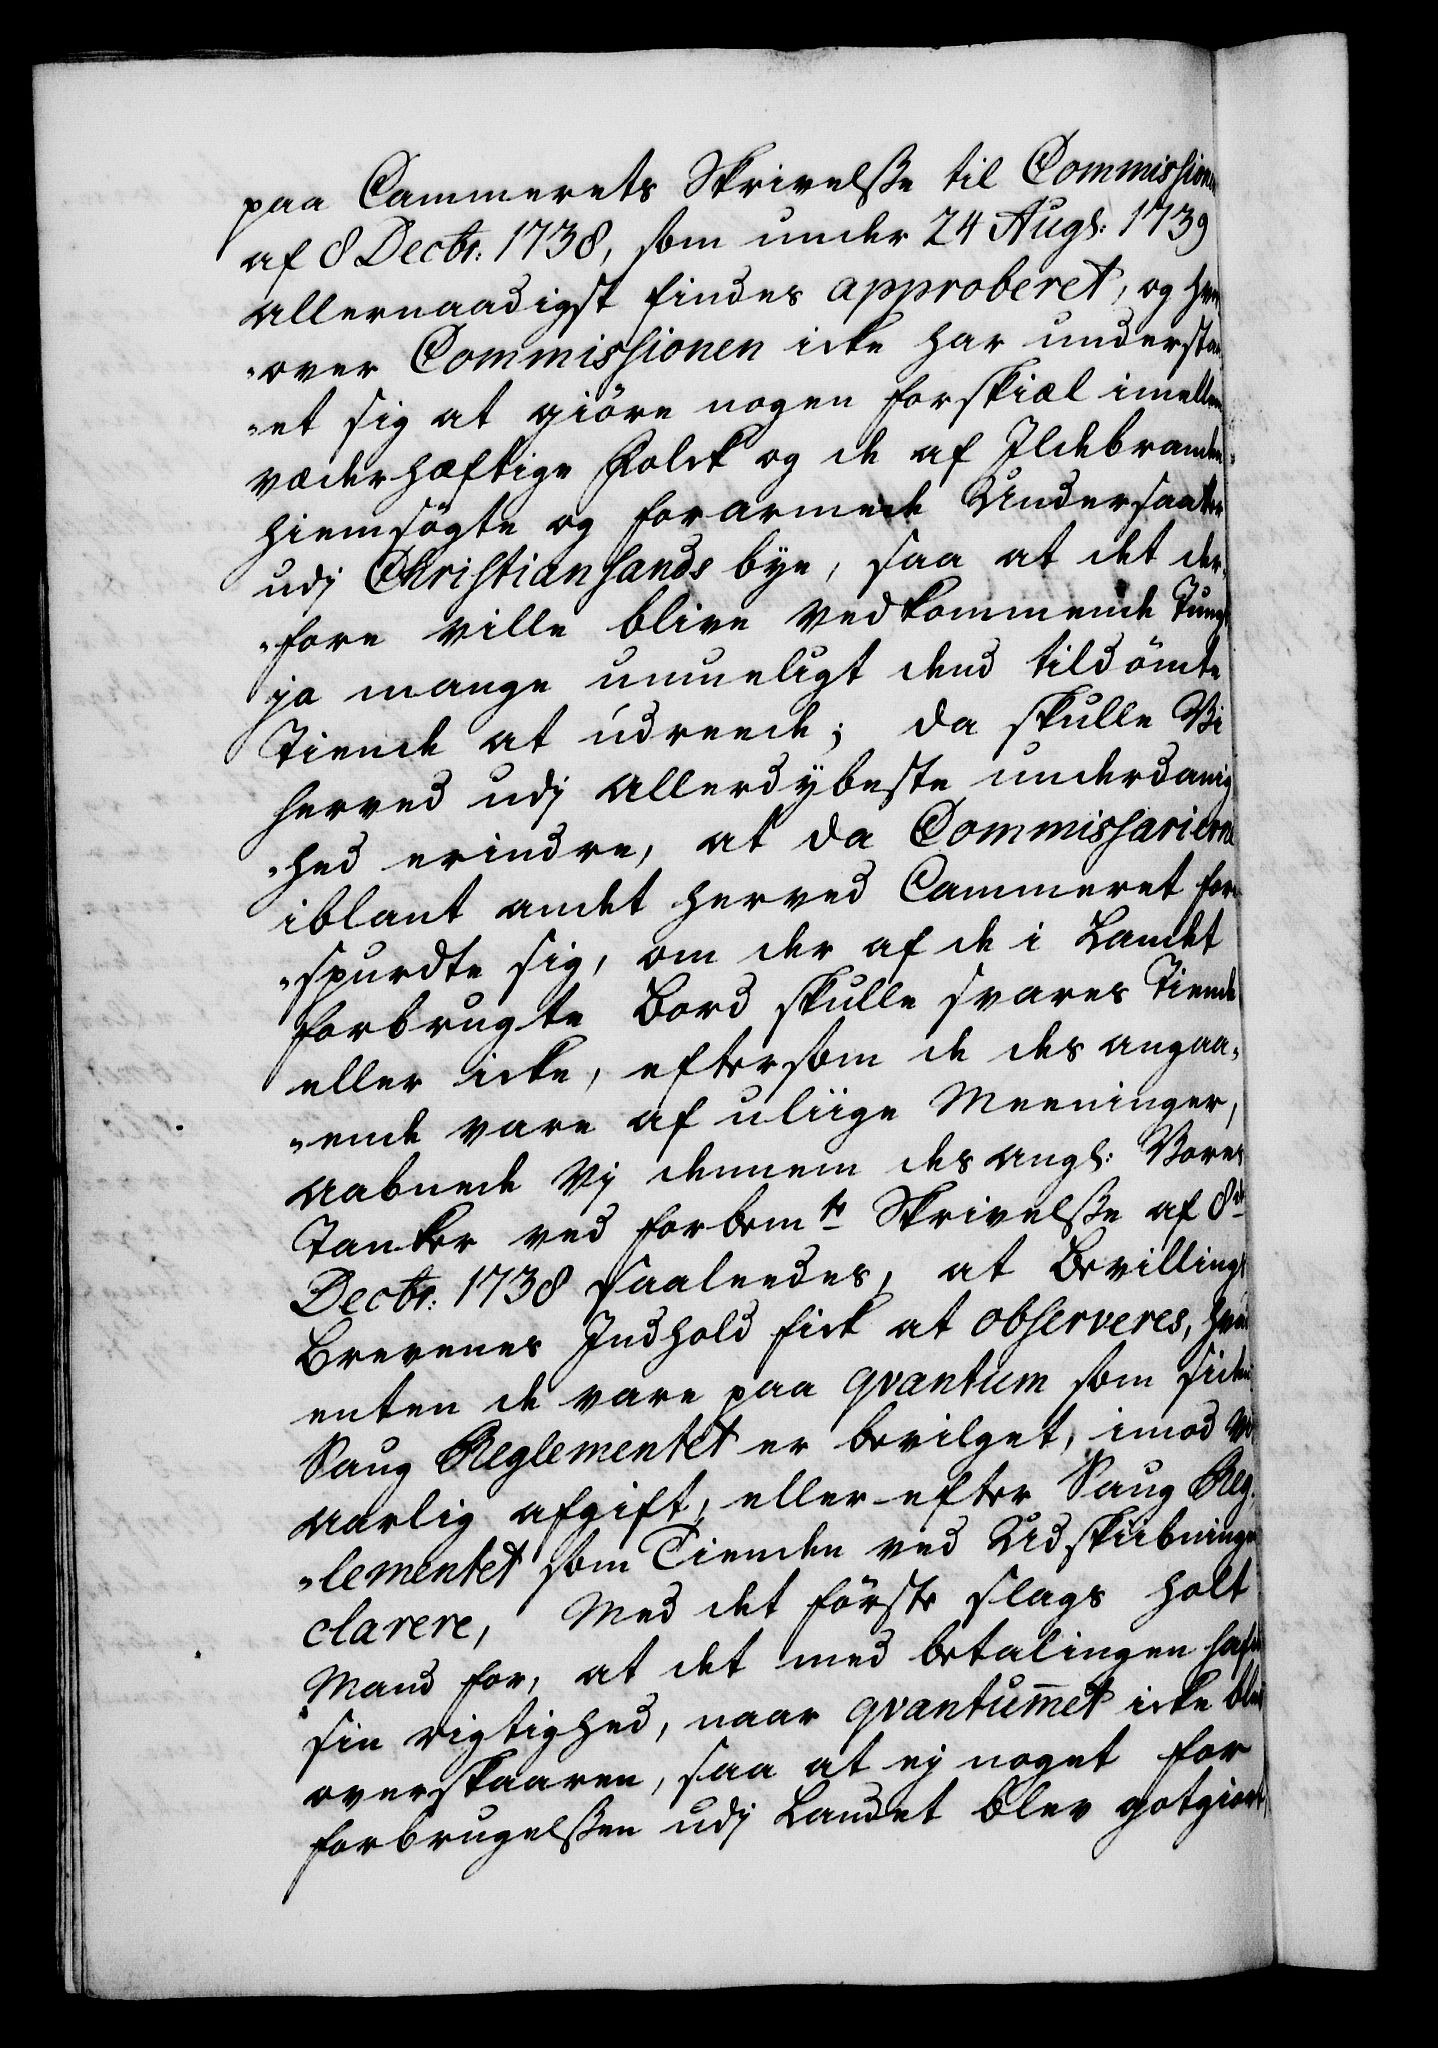 paa Cammerets Skrivelsse til Commissionen
af 8 Decbr: 1738, som under 24 Augs: 1739
allernaadigst findes approberet, og hvor
"over Commissionen icke har understaa
"et sig at giöre nogen forskiæl imellem
væderhæftige Folck og de af Ildebranden
hiemsögte og forarmede Undersaatter
udj Christiansands bye, saa at det der,
"fore ville blive vedkommende Tungt
ja mange umueligt dend tildömte
Tiende at udreede; da skulle Vi
herved udj allerdÿbeste underdanig
"hed erindre, at da Commissarierne
iblant andet herved Cammeret fore
"spurdte sig, om der af de i Landet
forbrugte Bord skulle svares Tiende
eller icke, eftersom de des angaa,
"ende vare af uliige Meeninger,
aabnede Vj dennem des angl: Vores
Tanker ved forbemte Skrivelsse af 8de
Decbr: 1738 saaleedes, at Bevillings
Brevenes Indhold fick at observeres, hvad
enten de vare paa qvantum som siden
Saug Reglementet er bevilget, imod
aarlig afgift, eller efter Saug Reg,
"lementet som Tienden ved Udskibningen
clarere, Med det förste slags holt
Mand for, at det med betalingen hafde
sin rigtighed, naar qvantummet icke blev
overskaaren, saa at ej noget for
forbrugelssen udj Landet blev gotgiort,